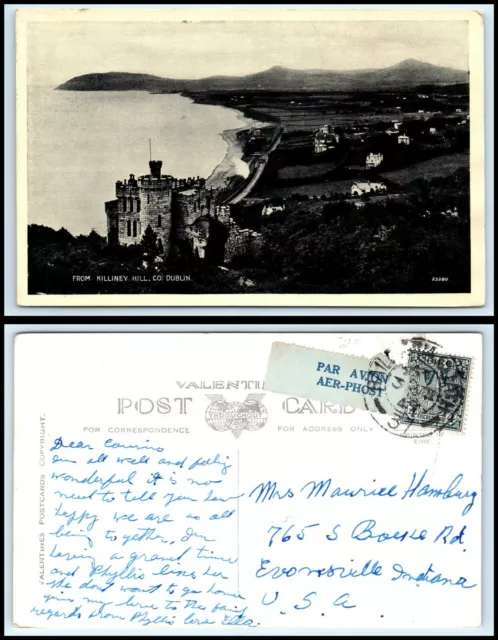 FROM KILLINEY HILL, CO. DUBLIN.
23380
VALENTINE
POST CARD
FOR CORRESPONDENCE
FOR ADDRESS ONLY
PAR AVION
AER-PHOST
EIRE
VALENTINES POSTCARDS COPYRIGHT.
Dear Cousins
I'm all well and
wonderful it is no
need to tell you how
happy we are as all
being to gether, I'm
having a grand time
and Phyllis likes her
she don't want to go home
give my love to the
regards from Phyllis love Ella.
Mrs Maurice Hamburg
765 S Rd.
Evansville Indiana
U.S.A